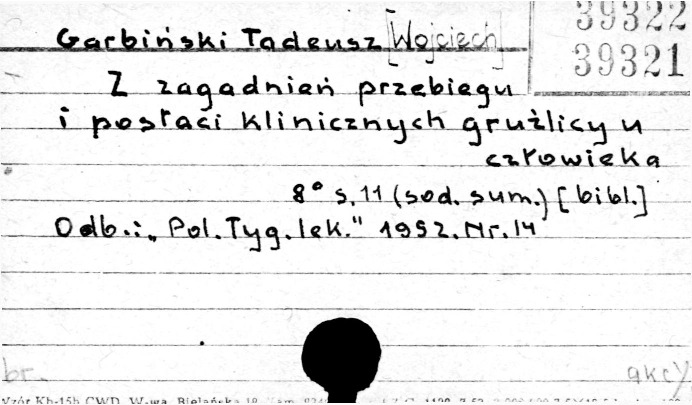 39322
Garbiński Tadeusz [Wojciech]
39321
Z zagadnień przebiegu
i postaci klinicznych gruźlicy u
człowieka
8° s. 11 (sod. sum.) [bibl.]
Odb.: „Pol. Tyg. lek." 1952. Nr. 14
br. akcy
Wzór Kh-15b CWD, W-wa, Bielańska 18